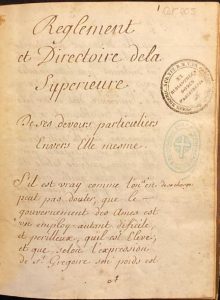 Reglement
et Directoire de la
Superieure
De ses devoirs particuliers
Envers Elle mesme.
S'il est vray comme l'on n'en
peut pas douter, que le
gouvernement des Ames est
un employ autant dificile,
et perilleux, quil est Elevé,
et que selon l'expression
de St. Gregoire son poids est